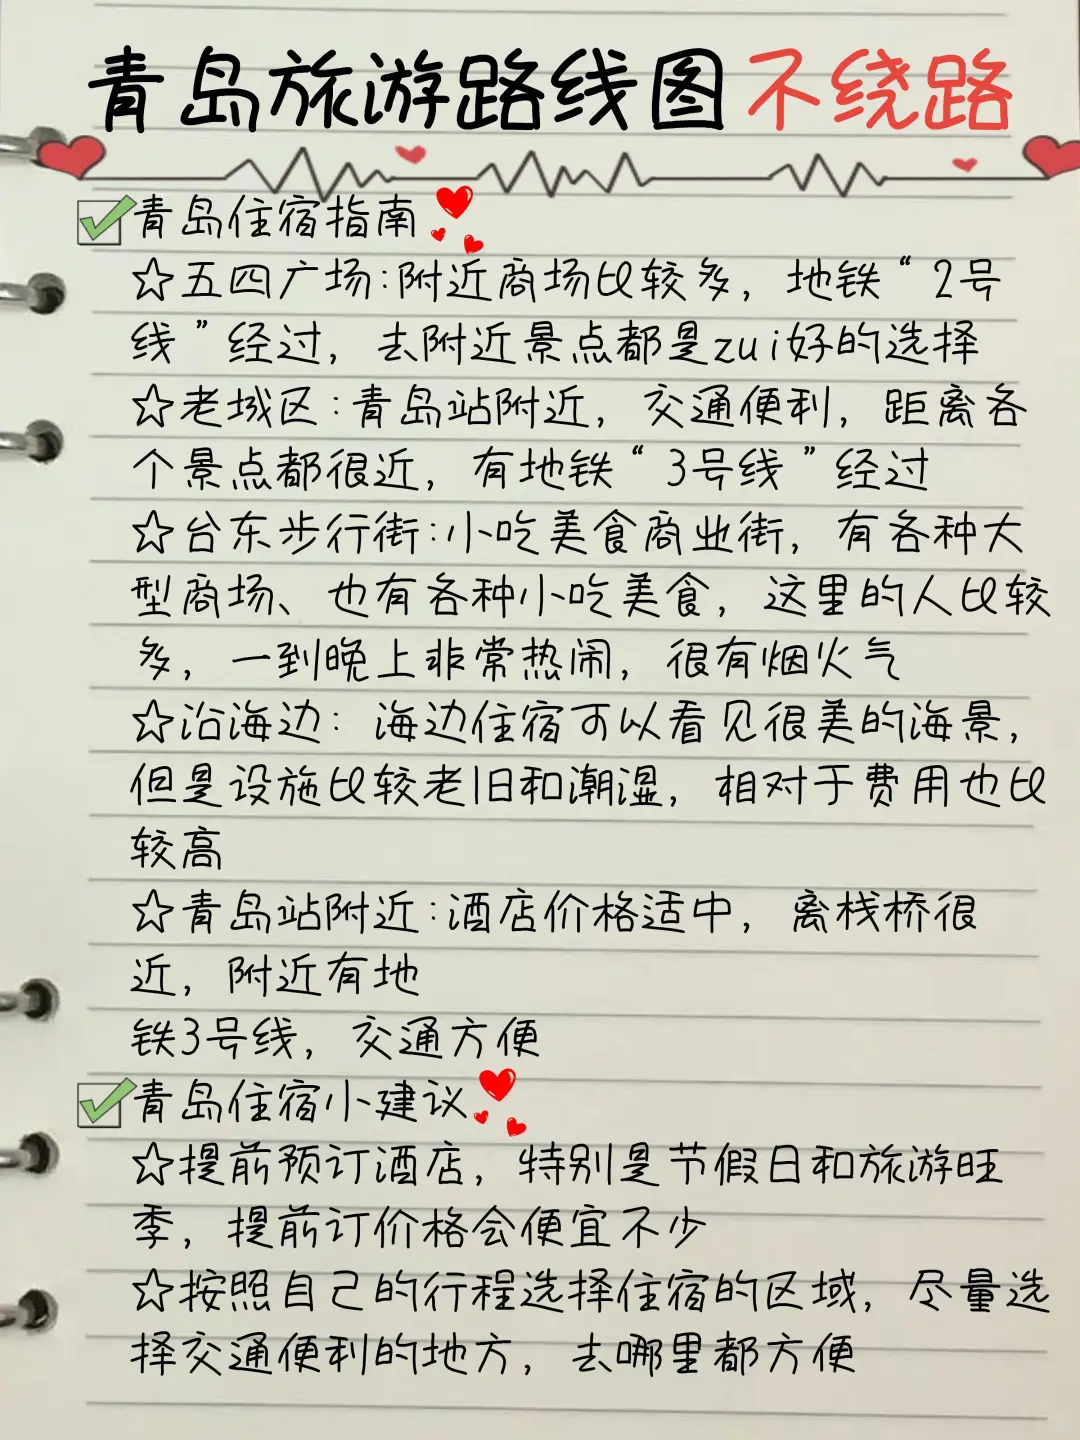 青岛旅游路线图 不绕路
青岛住宿指南
☆五四广场:附近商场比较多，地铁“2号
线”经过，去附近景点都是zui好的选择
☆老城区:青岛站附近，交通便利，距离各
个景点都很近，有地铁“3号线”经过
☆台东步行街:小吃美食商业街，有各种大
型商场、也有各种小吃美食，这里的人比较
多，一到晚上非常热闹，很有烟火气
☆沿海边：海边住宿可以看见很美的海景，
但是设施比较老旧和潮湿，相对于费用也比
较高
☆青岛站附近:酒店价格适中，离栈桥很
近，附近有地
铁3号线，交通方便
青岛住宿小建议
☆提前预订酒店，特别是节假日和旅游旺
季，提前订价格会便宜不少
☆按照自己的行程选择住宿的区域，尽量选
择交通便利的地方，去哪里都方便